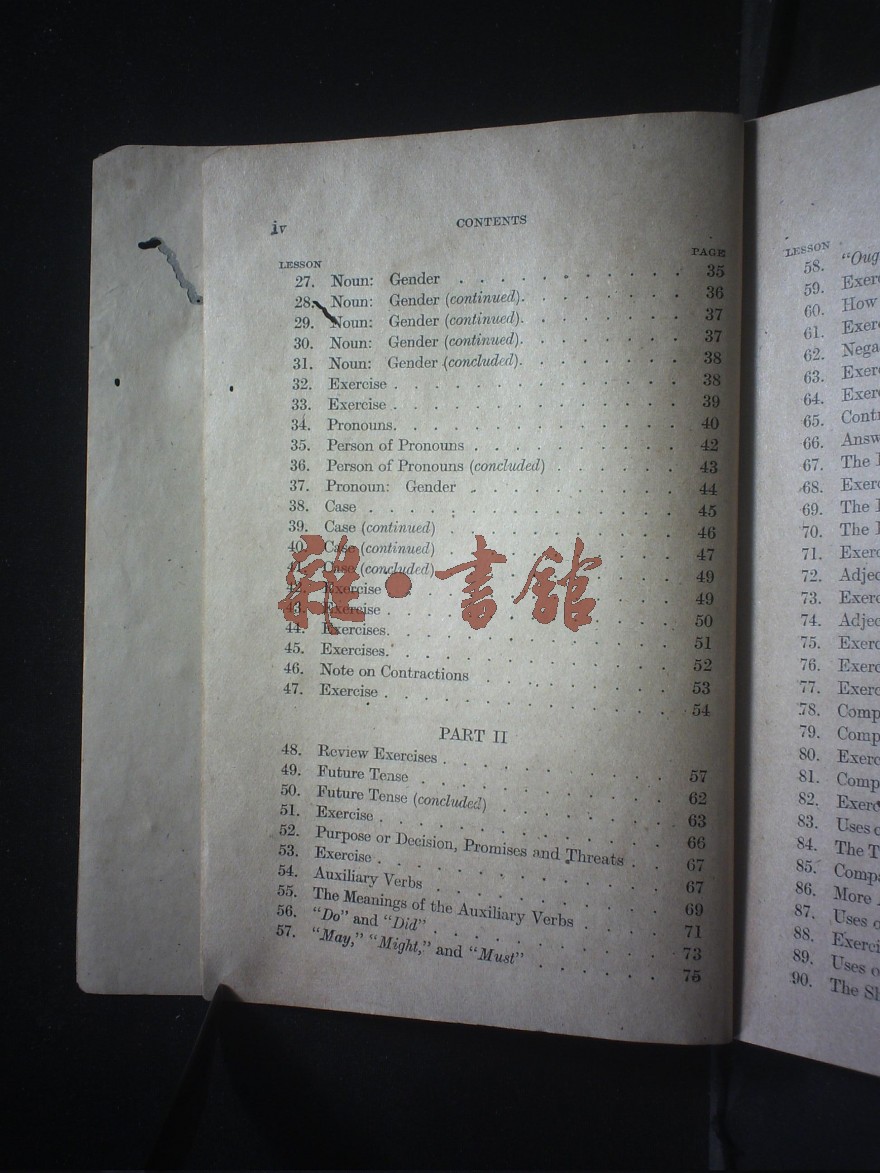 iv CONTENTS
LESSON PAGE
27. Noun: Gender . . . . . . . . . . . 35
28. Noun: Gender (continued). . . . . . . . 36
29. Noun: Gender (continued). . . . . . . . 37
30. Noun: Gender (continued). . . . . . . . 37
31. Noun: Gender (concluded). . . . . . . . 38
32. Exercise . . . . . . . . . . . . . 38
33. Exercise . . . . . . . . . . . . . 39
34. Pronouns. . . . . . . . . . . . . 40
35. Person of Pronouns . . . . . . . . . 42
36. Person of Pronouns (concluded) . . . . . . 43
37. Pronoun: Gender . . . . . . . . . 44
38. Case . . . . . . . . . . . . . 45
39. Case (continued) . . . . . . . . . . 46
40. Case (continued) . . . . . . . . . . 47
41. Case (concluded) . . . . . . . . . . 49
42. Exercise . . . . . . . . . . . . 49
43. Exercise . . . . . . . . . . . . 50
44. Exercises. . . . . . . . . . . . 51
45. Exercises. . . . . . . . . . . . 52
46. Note on Contractions . . . . . . . . 53
47. Exercise . . . . . . . . . . . . 54
雜·書館
PART II
48. Review Exercises . . . . . . . . . . 57
49. Future Tense . . . . . . . . . . . 62
50. Future Tense (concluded) . . . . . . . 63
51. Exercise . . . . . . . . . . . . 66
52. Purpose or Decision, Promises and Threats . . 67
53. Exercise . . . . . . . . . . . . 67
54. Auxiliary Verbs . . . . . . . . . . 69
55. The Meanings of the Auxiliary Verbs . . . . 71
56. "Do" and "Did" . . . . . . . . . . 73
57. "May," "Might," and "Must" . . . . . . 75
LESSON
58. "Oug
59. Exer
60. How
61. Exer
62. Nega
63. Exer
64. Exer
65. Cont
66. Answ
67. The
68. Exer
69. The
70. The
71. Exerc
72. Adjec
73. Exerc
74. Adjec
75. Exerc
76. Exerc
77. Exerc
78. Comp
79. Comp
80. Exerc
81. Comp
82. Exerc
83. Uses
84. The T
85. Compa
86. More
87. Uses
88. Exerci
89. Uses
90. The